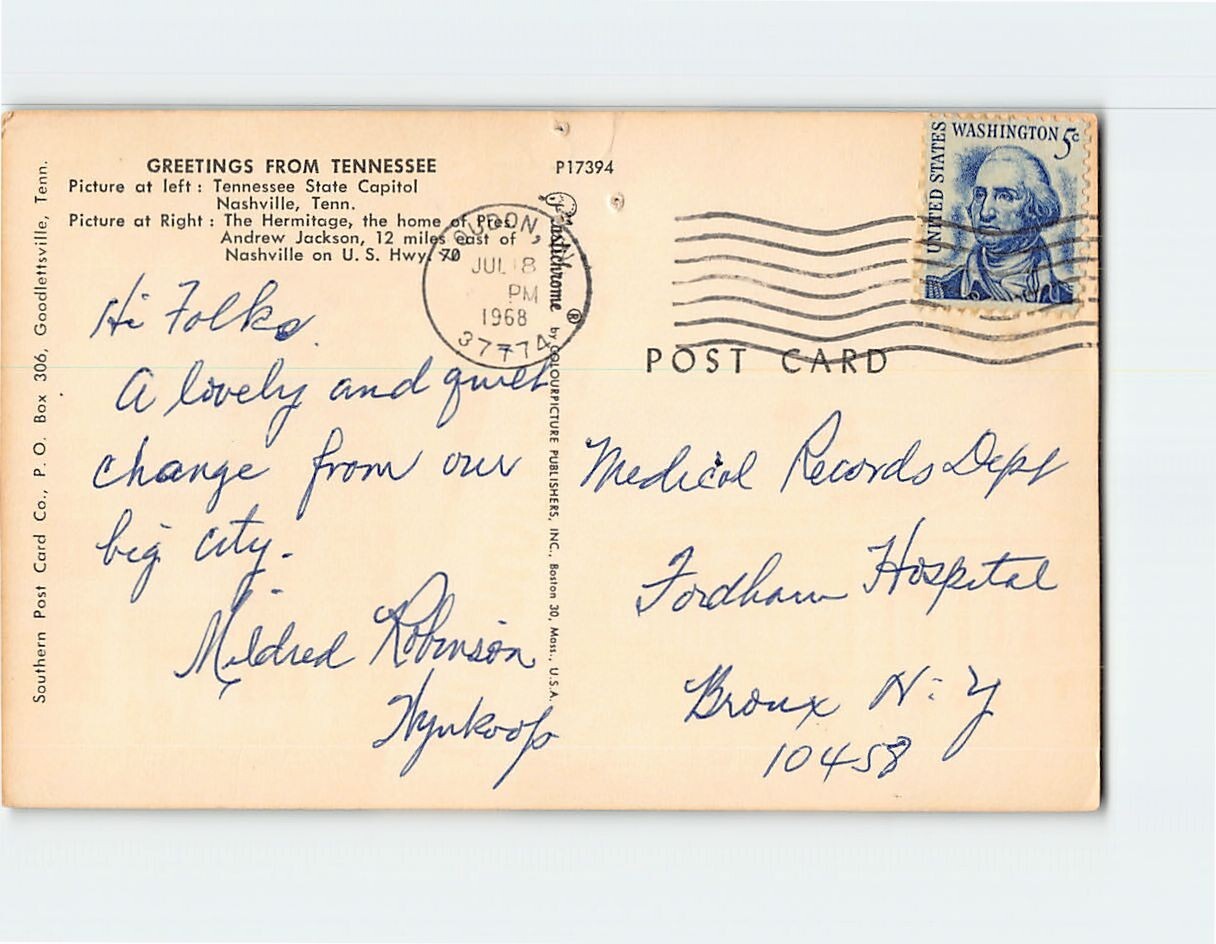 GREETINGS FROM TENNESSEE
Picture at left : Tennessee State Capitol
Nashville, Tenn.
Picture at Right : The Hermitage, the home of Pres.
Andrew Jackson, 12 miles east of
Nashville on U. S. Hwy. 70
P17394
Southern Post Card Co., P. O. Box 306, Goodlettsville, Tenn.
Plastichrome ® by COLOURPICTURE PUBLISHERS, INC., Boston 30, Mass., U.S.A.
LOUDON,
JUL 8
PM
1968
37774
UNITED STATES
WASHINGTON 5c
POST CARD
Hi Folks.
A lovely and quiet
change from our
big city.
Mildred Robinson
Wynkoop
Medical Records Dept
Fordham Hospital
Bronx N.Y
10458